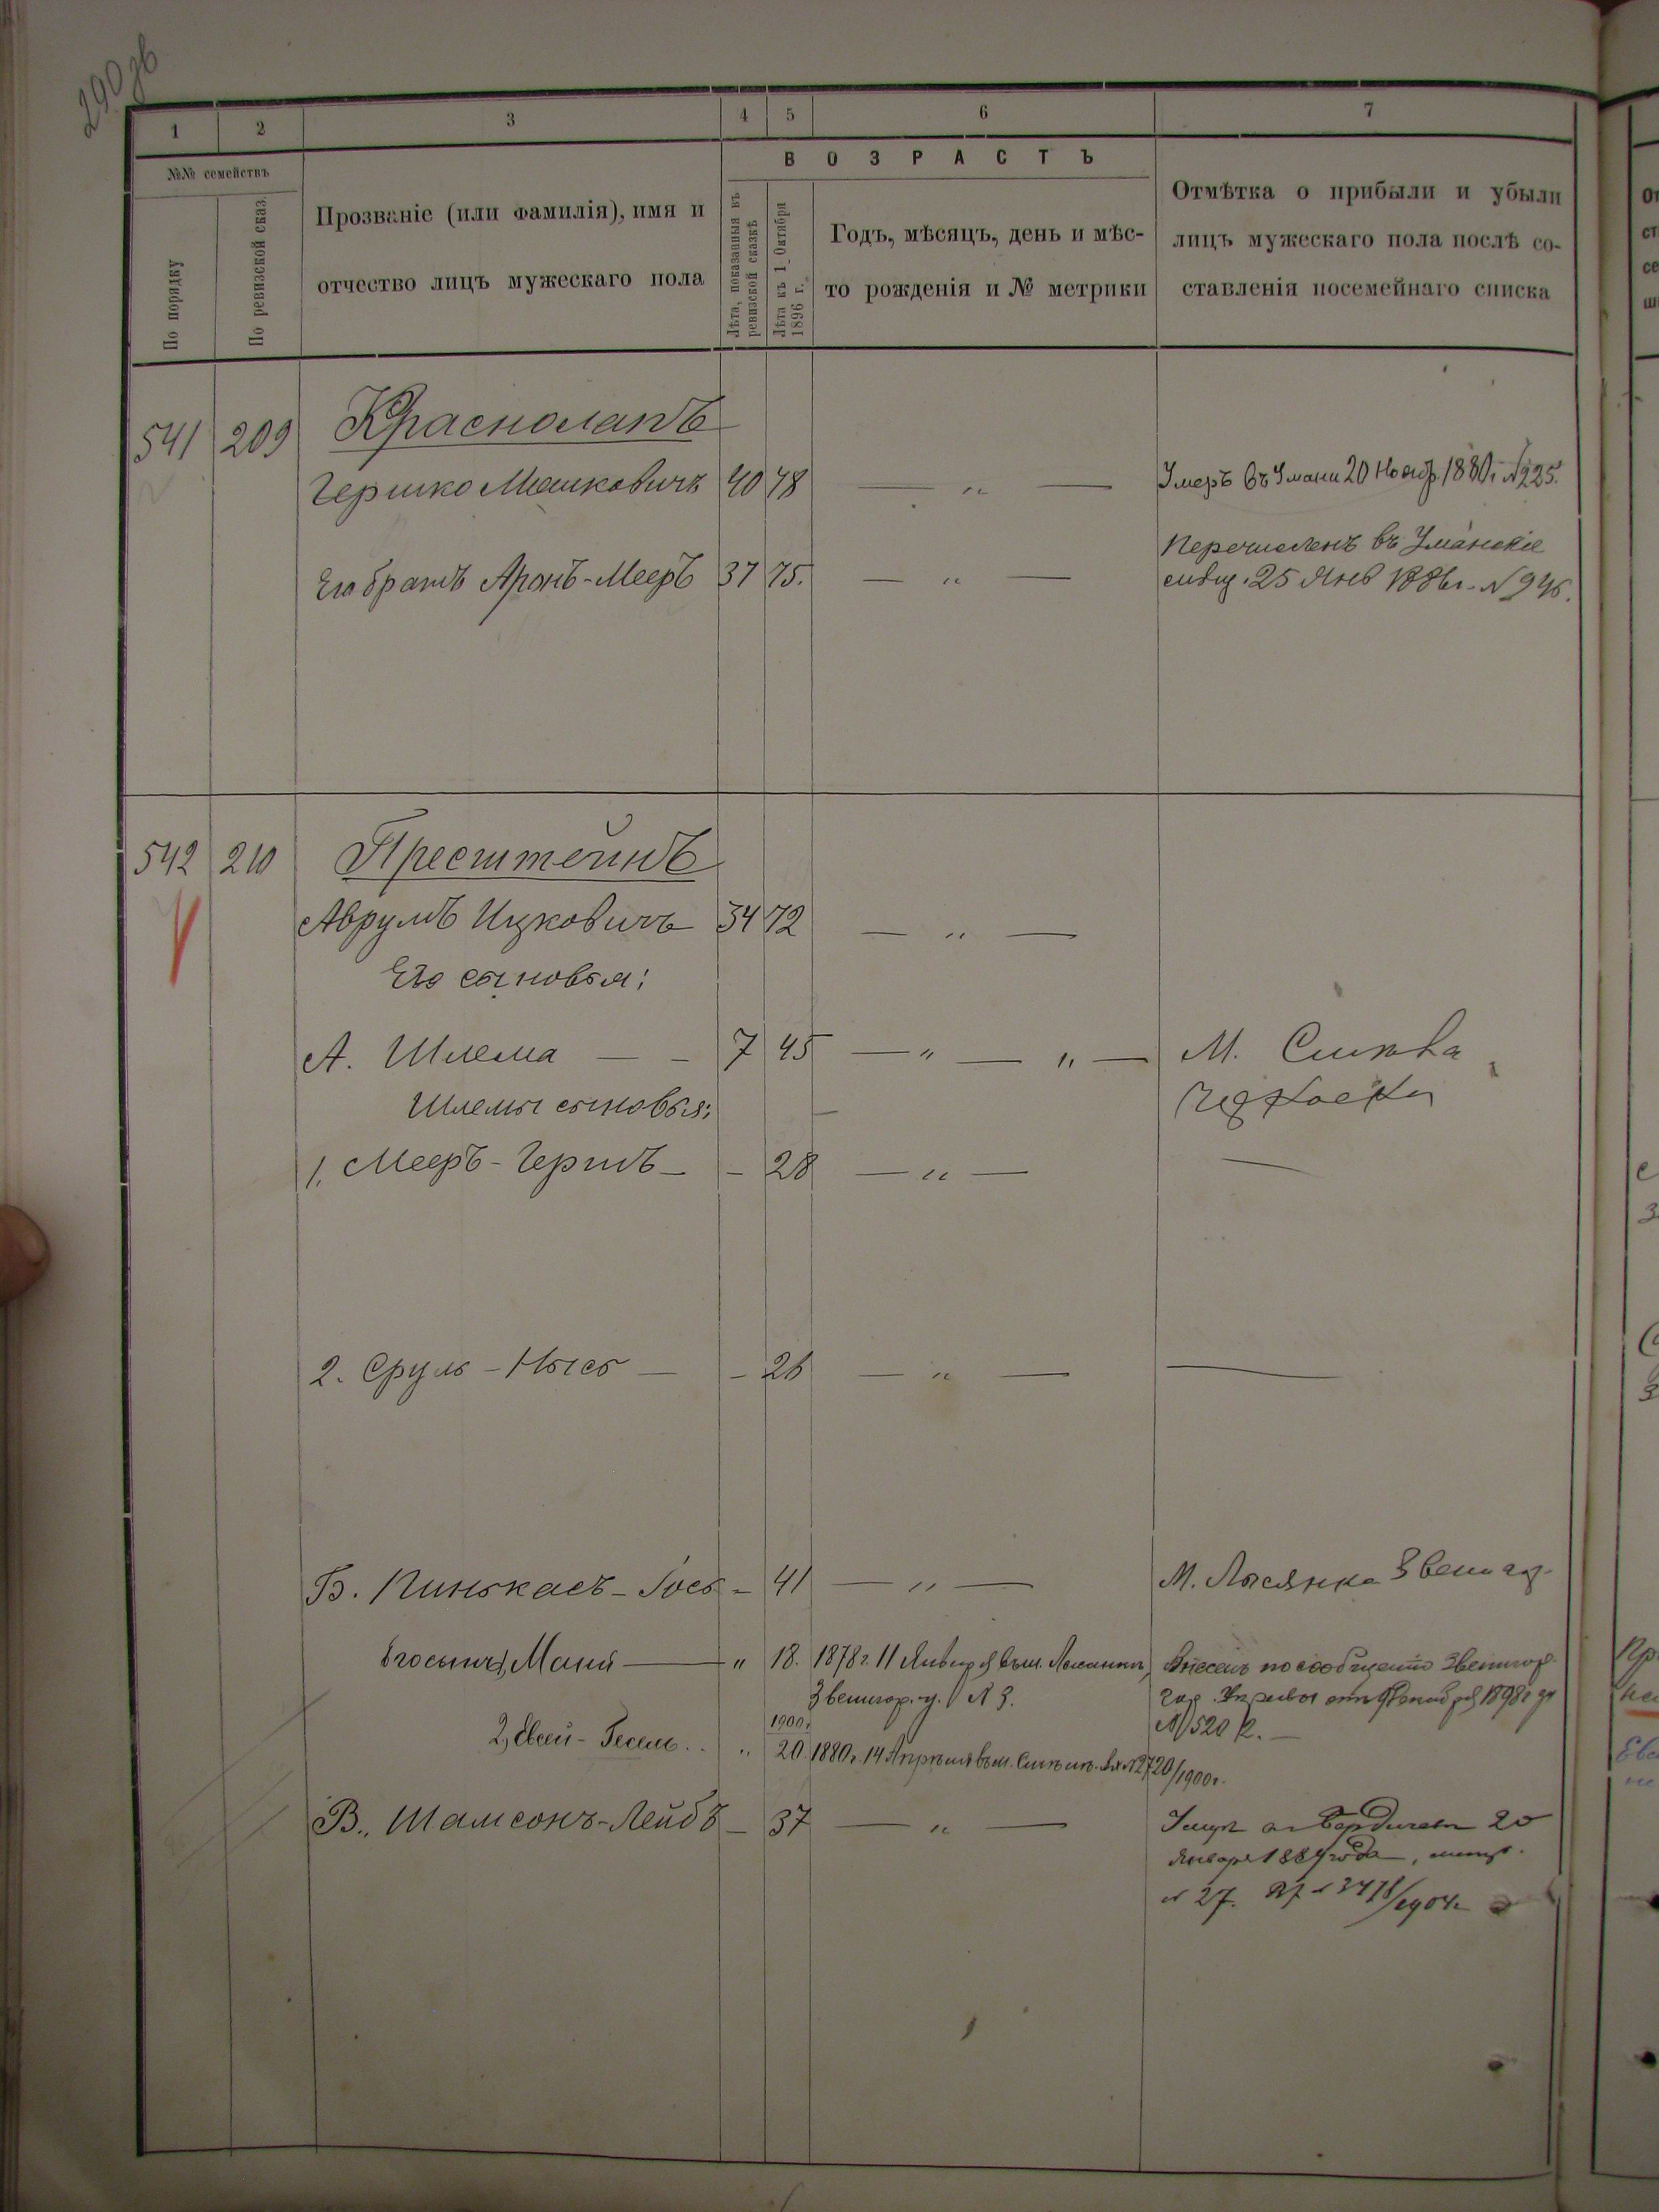 290 зв
1 2 3 4 5 6 7
№№ семействъ
По порядку
По ревизской сказ.
Прозваніе (или Фамилія), имя и
отчество лицъ мужескаго пола
ВОЗРАСТЪ
Лѣта, показанныя въ
ревизской сказкѣ
Лѣта къ 1 Октября
1896 г.
Годъ, мѣсяцъ, день и мѣс-
то рожденія и № метрики
Отмѣтка о прибыли и убыли
лицъ мужескаго пола послѣ со-
ставленія посемейнаго списка
541 209 Краснолапъ
Гершко Мошковичъ 40 78 — " — Умеръ въ Умани 20 Нояб. 1880 г. №225.
Его братъ Аронъ-Мееръ 37 75. — " — Перечисленъ въ Уманскіе
25 Янв 1886 г. №946.
542 210 Пресштейнъ
Аврумъ Ицковичъ 34 72 — " —
Его сыновья:
А. Шлема — - 7 45 — " — " — М.
Шлемы сыновья:
1. Мееръ-Гершъ - - 28 — " — —
2. Сруль-Нысь — - 26 — " — —
Б. Пинькасъ-Іось - 41 — " — М. Лысянка Звениг.
Его сынъ 1, " 18. 1878 г. 11 Января въ м. Лысянкѣ, Внесенъ по сообщенію Звенигор.
Звенигор. у. № 3. 1898 г.
№ 520
1900 г.
2, - Гесель.. " 20. 1880 г. 14 Апрѣля въ м. №2720/1900 г.
В.. Шамсонъ-Лейбъ - 37 — " — 20
Января года,
№ 27. № 3478/1904 г.